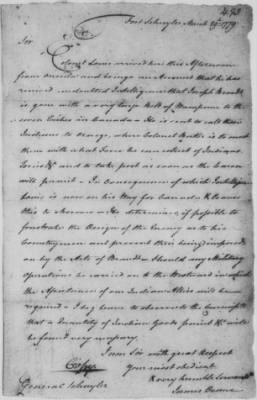 Fort Schuyler March 29th 1779
Sir
Colonel Louis arrived here this Afternoon
from Oneida and brings an Account that he has
received undoubted Intelligence that Joseph Brandt
is gone with a very large Belt of Wampum to the
seven Tribes in Canada - He is sent to call those
Indians to Oswego, where Colonel Butler is to meet
them with what force he can collect of Indians,
Tories &c and to take post as soon as the Season
will permit - In Consequence of which Intelligence
Louis is now on his Way for Canada & leaves
this to Morrow - He determines if possible to
frustrate the Design of the Enemy as to his
Countrymen and prevent their being imposed
on by the Arts of Brandt - Should any Military
Operations be carried on to the Westward in which
the Assistance of our Indian Allies will be
required I beg leave to observe to the
that a Quantity of Indian Goods &c will
be found very necessary.
I am Sir with great Respect
Your most obedient
& very humble Servant
James Deane
Copy
General Schuyler